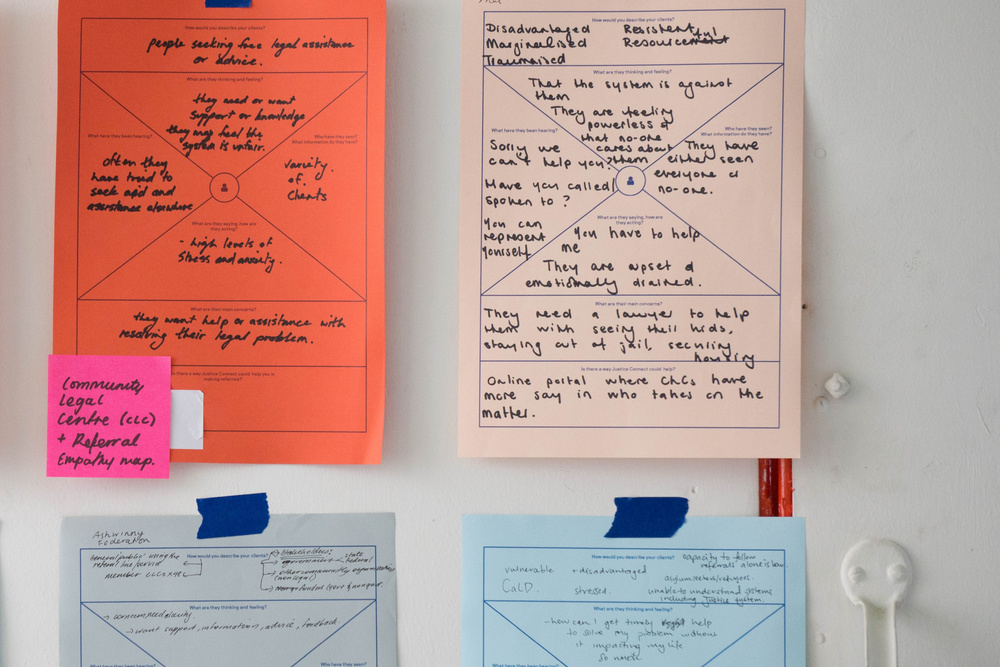 How would you describe your clients?
people seeking free legal assistance
or advice.
What are they thinking and feeling?
they need or want
support or knowledge
they may feel the
system is unfair.
What have they been hearing?
Often they
have tried to
seek aid and
assistance elsewhere
Who have they seen?
What information do they have?
variety
of
clients
What are they saying, how are
they acting?
- high levels of
stress and anxiety.
What are their main concerns?
they want help or assistance with
resolving their legal problem.
Is there a way Justice Connect could help you in
making referrals?
Community
Legal
Centre (CLC)
+ Referral
Empathy map.
How would you describe your clients?
Disadvantaged Resistent
Marginalised Resourceful
Traumatised
What are they thinking and feeling?
That the system is against
them
They are feeling
powerless &
that no-one
cares about
them
What have they been hearing?
Sorry we
can't help you?
Have you called/
spoken to?
You can
represent
yourself
Who have they seen?
What information do they have?
They have
either seen
everyone or
no-one.
What are they saying, how are
they acting?
You have to help
me
They are upset &
emotionally drained.
What are their main concerns?
They need a lawyer to help
them with seeing their kids,
staying out of jail, securing
housing
Is there a way Justice Connect could help?
Online portal where CLCs have
more say in who takes on the
matter.
Federation
How would you describe your clients?
general public using the
member CLCs
Stakeholders:
government
state
federal
(non legal)
What are they thinking and feeling?
→ concern, need clarity
→ want support, information, advice, feedback.
What have they been hearing?
Who have they seen?
How would you describe your clients?
vulnerable + disadvantaged
CaLD. stressed.
capacity to follow
referrals alone is low.
asylum seekers/refugees.
unable to understand systems
including justice system.
What are they thinking and feeling?
- how can I get timely help
to solve my problem without
it impacting my life
so much
What have they been hearing?
Who have they seen?